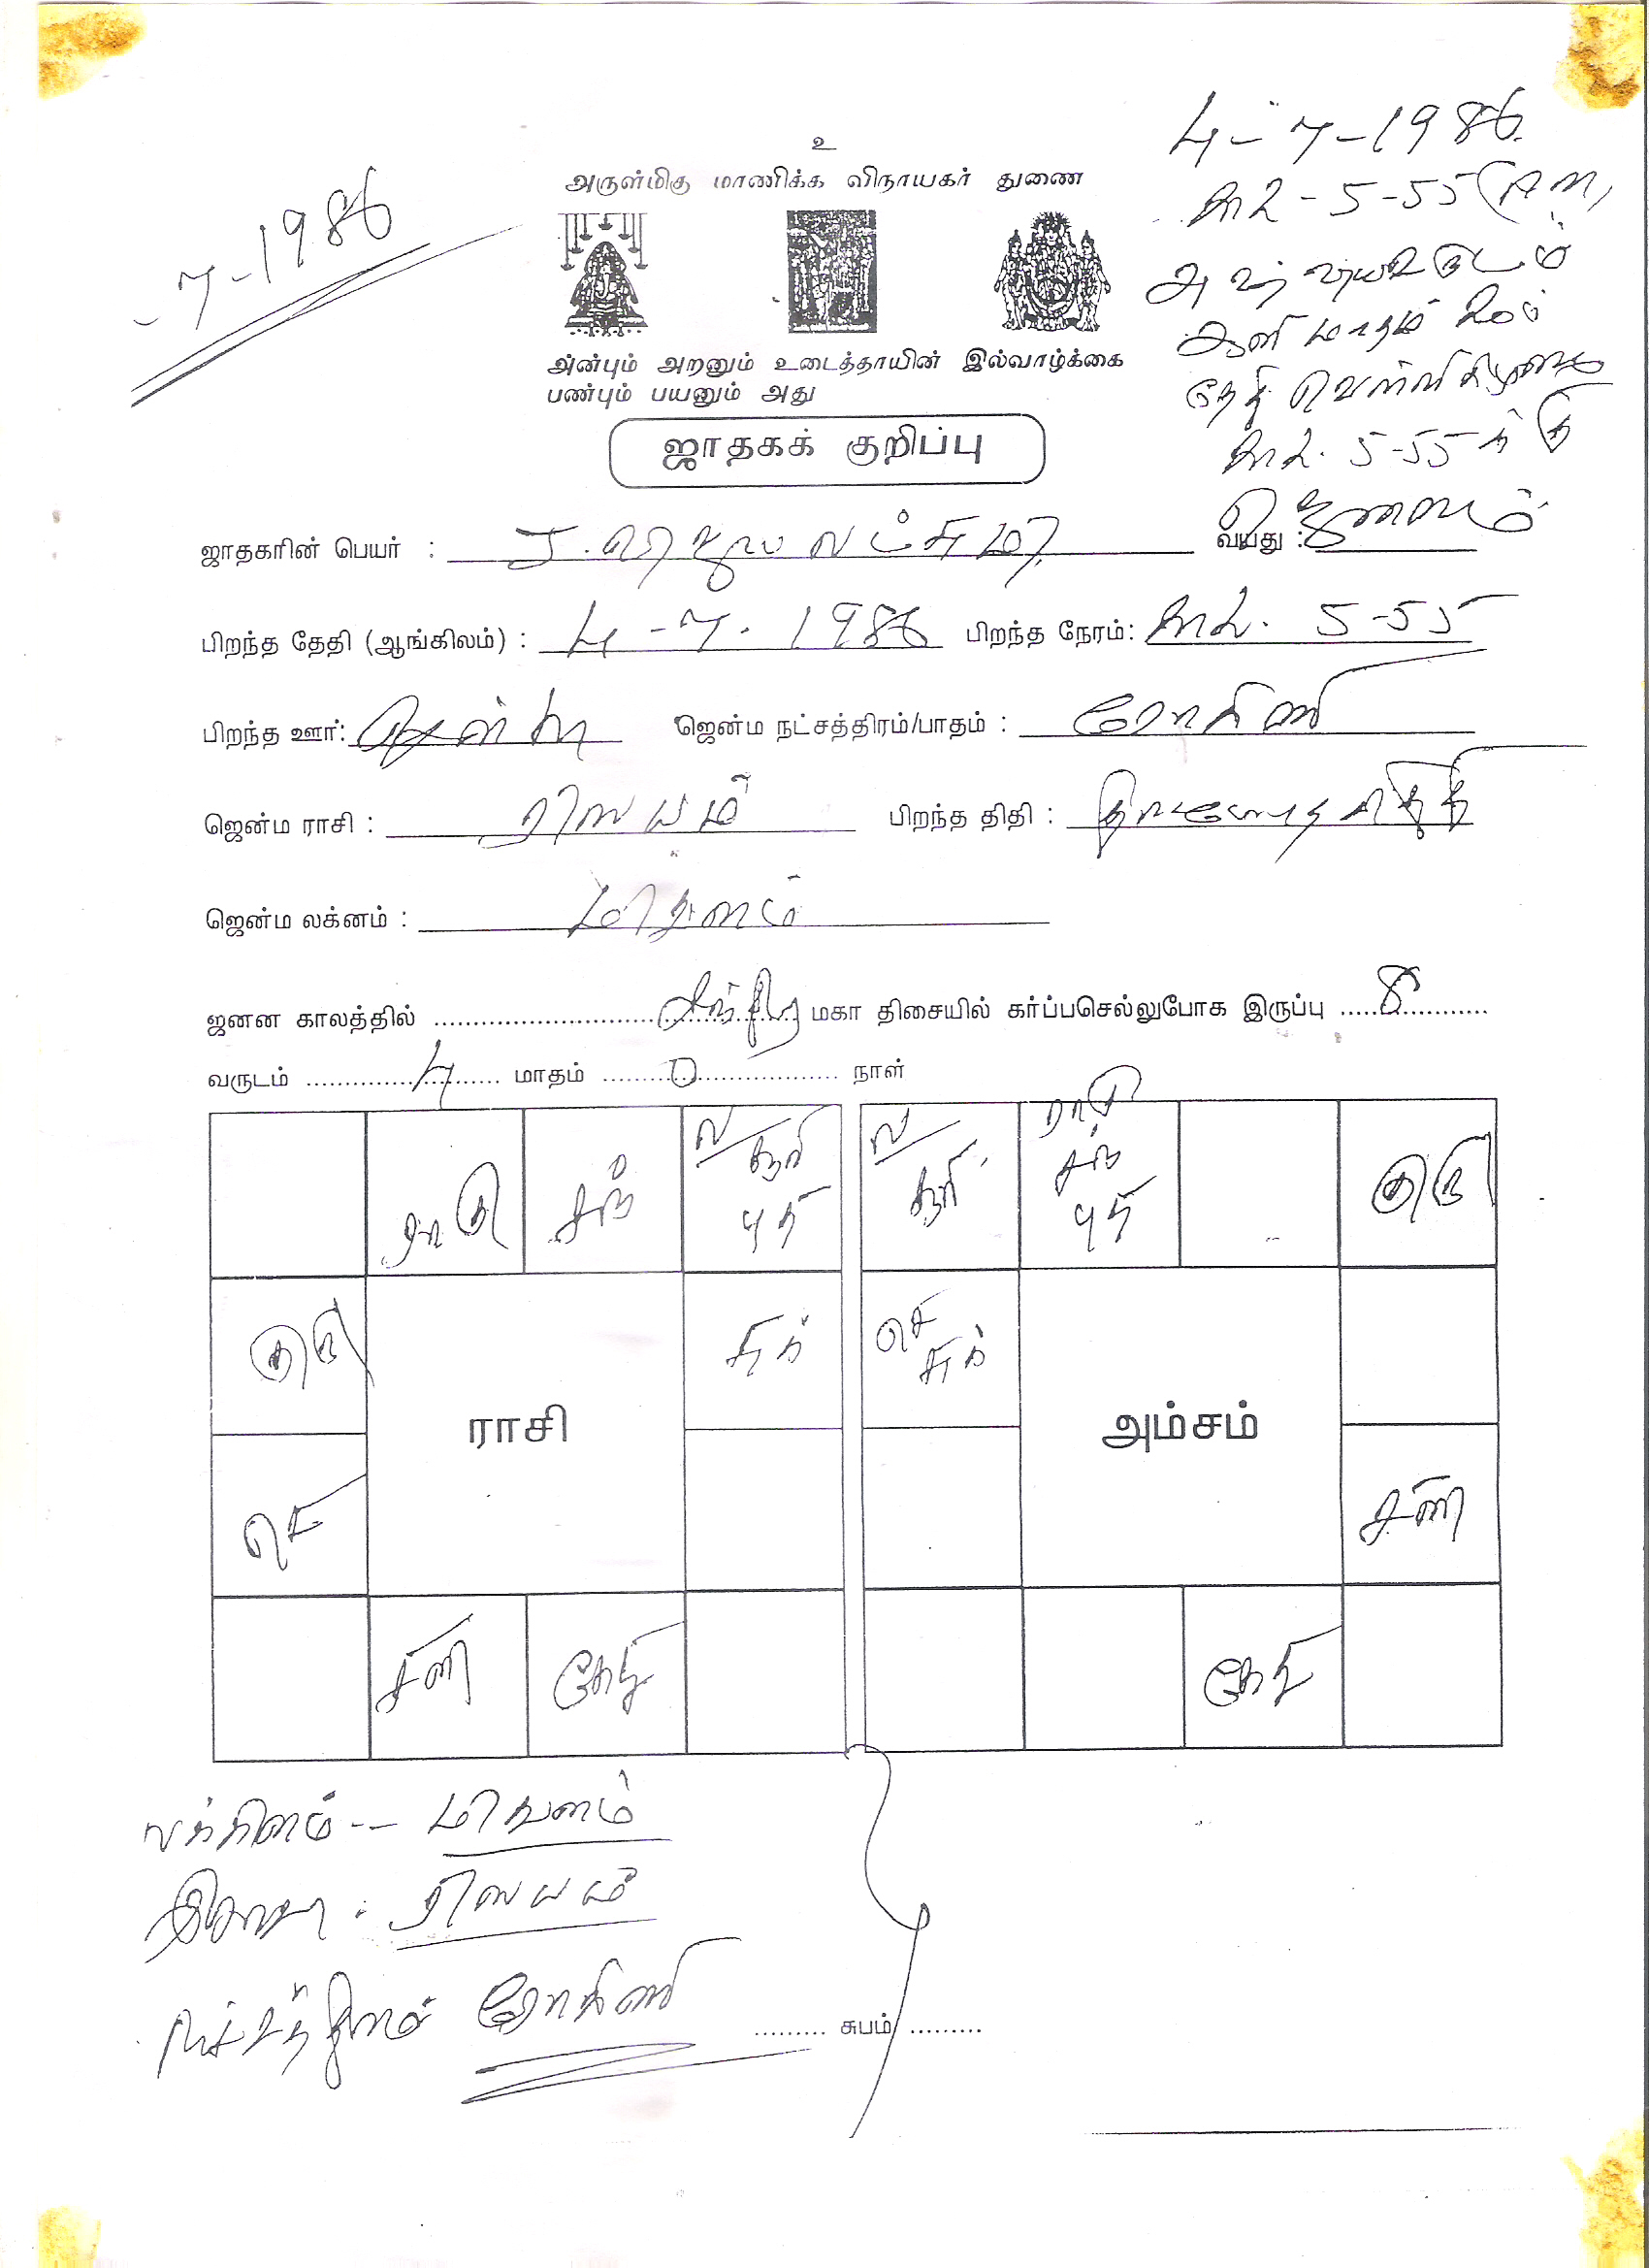 4-7-1986
காலை - 5-55 (AM)
-7-1986
உ
அருள்மிகு மாணிக்க விநாயகர் துணை
ஆனி மாதம் 20ம்
அன்பும் அறனும் உடைத்தாயின் இல்வாழ்க்கை
பண்பும் பயனும் அது
தேதி வெள்ளிகிழமை
ஜாதகக் குறிப்பு
5-55க்கு
ஜாதகரின் பெயர் : வயது : ஜனனம்
பிறந்த தேதி (ஆங்கிலம்) : 4 - 7 - 1986 பிறந்த நேரம்: 5-55
பிறந்த ஊர்: சென்னை ஜென்ம நட்சத்திரம்/பாதம் : ரோகிணி
ஜென்ம ராசி : ரிஷபம் பிறந்த திதி :
ஜென்ம லக்னம் : மிதுனம்
ஜனன காலத்தில் சந்திர மகா திசையில் கர்ப்பசெல்லுபோக இருப்பு 8
வருடம் 4 மாதம் 0 நாள்
ராகு சந் ல/ சூரி புத்
குரு சுக்
ராசி
செ
சனி கேது
ல/ சூரி ராகு சந் புத் குரு
செ சுக்
அம்சம்
சனி
கேது
லக்கினம் -- மிதுனம்
இராசி : ரிஷபம்
நட்சத்திரம் ரோகிணி
......... சுபம் .........